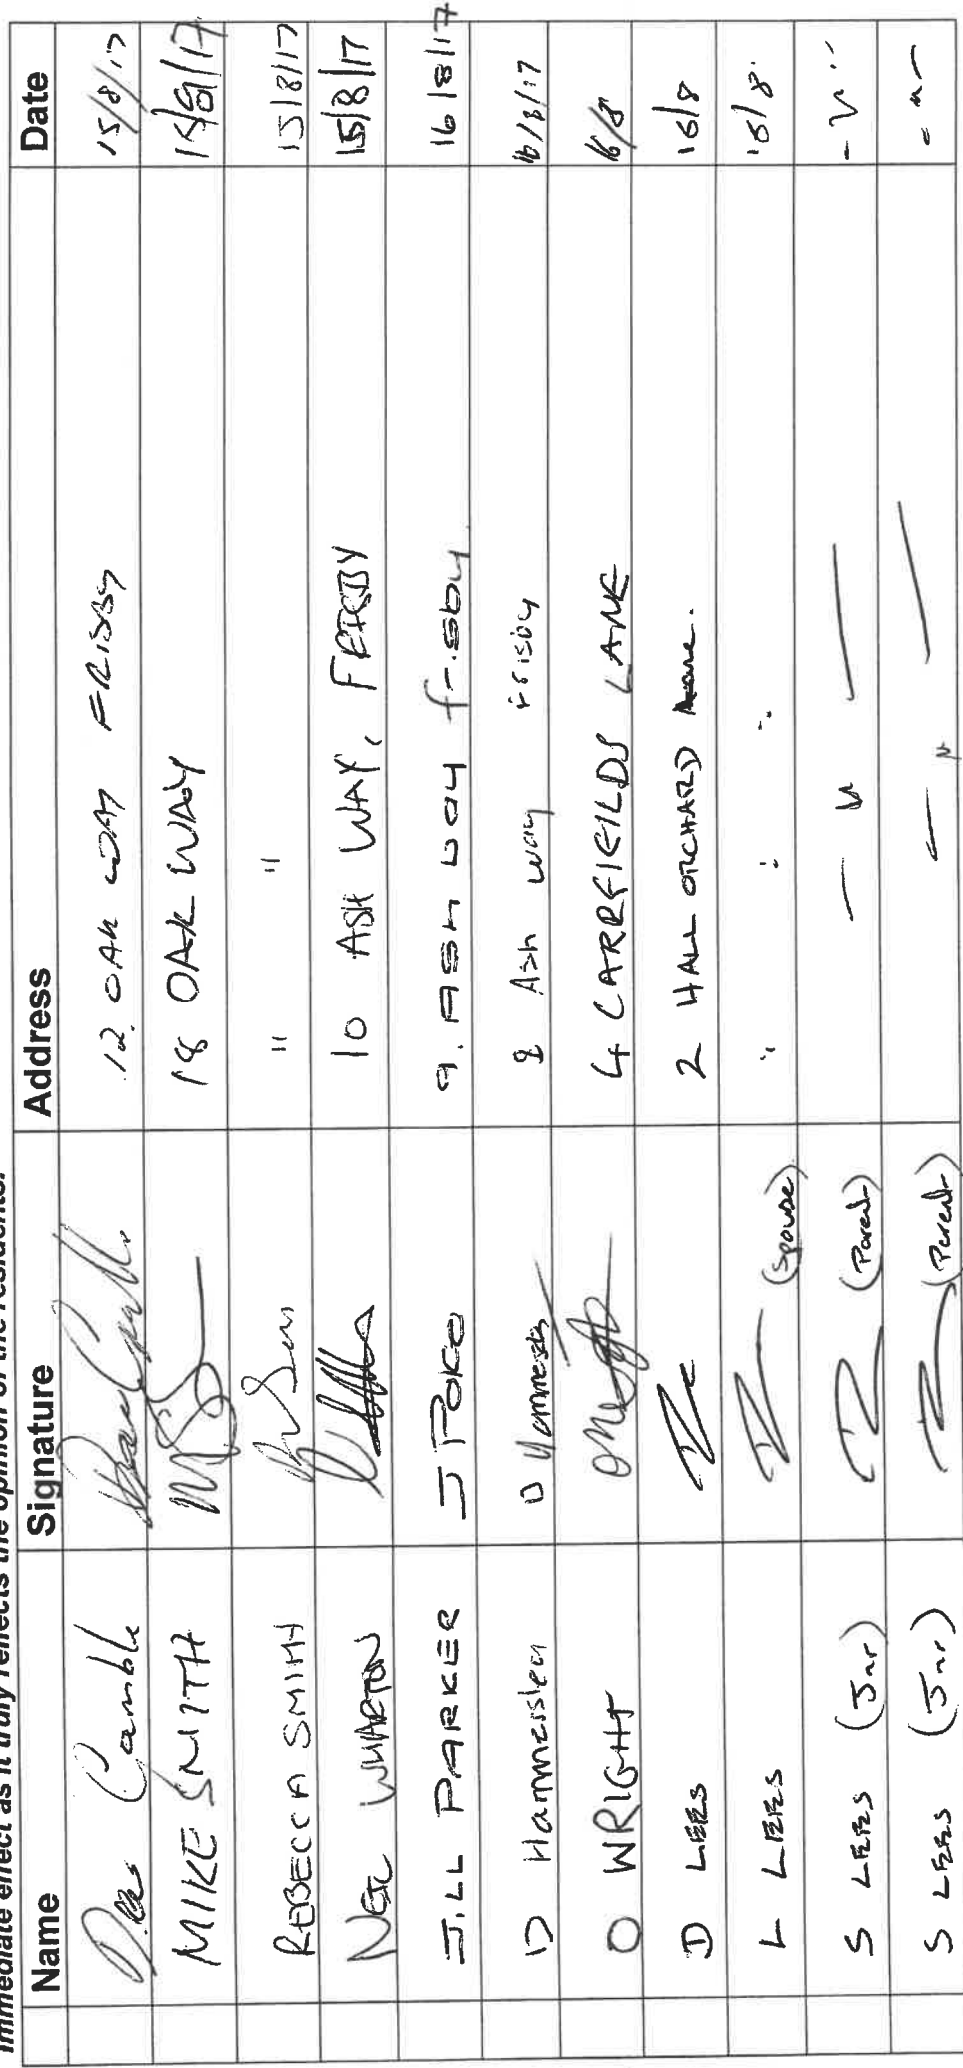 immediate effect as it truly reflects the opinion of the residents.
Name Signature Address Date
Camble 12. OAK WAY FRISBY 15/8/17
MIKE SMITH 18 OAK WAY 15/8/17
REBECCA SMITH " " 15/8/17
NEIL WHARTON 10 ASH WAY, FRISBY 15/8/17
JILL PARKER J PARKER 9. ASH WAY frisby 16/8/17
D Hammersley D Hammersley Ash way frisby 16/8/17
O WRIGHT 4 CARRFIELDS LANE 16/8
D LEES 2 HALL ORCHARD 16/8
L LEES (spouse) " " " 16/8
S LEES (Jnr) (Parent) — " — - " -
S LEES (Jnr) (Parent) — " — - " -